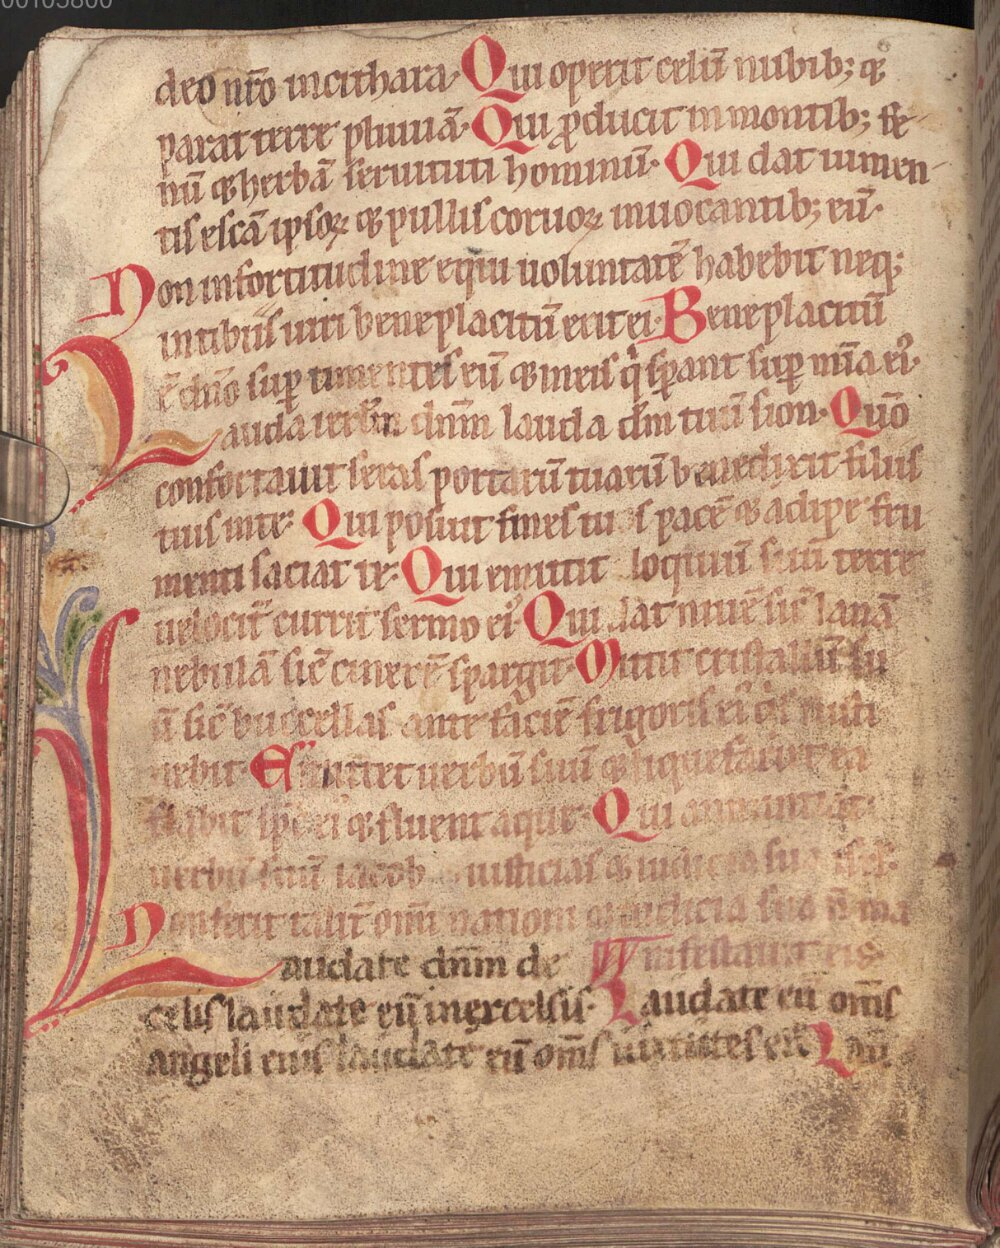 00105800
deo nr̄o incithara· Qui operit celū nubib; ⁊
parat terre pluuiā· Qui ꝓducit inmontib; fe
nū ⁊herbā seruituti hominū· Qui dat iumen-
tis escā ipsoꝝ ⁊ pullis coruoꝝ inuocantib; eū·
Non infortitudine equi uoluntatē habebit neq;
intibiis uiri beneplacitū erit ei· Beneplacitū
ē dn̄o suꝑ timentes eū ⁊ ineis q̇ sꝑant suꝑ mīa ei᾽·
Lauda ierłm dn̄m lauda dm̄ tuū sion· Qūo
confortauit seras portarū tuarū benedixit filiis
tuis inte· Qui posuit fines tuos pacē ⁊ adipe fru
menti saciat te· Qui emittit loquiū suū terre
uelocit̄ currit sermo ei᾽ Qui dat niuē sic̄ lanā
nebulā sic̄ cinerē spargit· Mittit cristallū su
ū sic̄ buccellas ante faciē frigoris ei᾽ q̇s susti
nebit· Emittet uerbū suū ⁊ liquefaciet ea
flabit sp̄c ei᾽ ⁊ fluent aque· Qui annuntiat
uerbū suū iacob iusticias ⁊ iudicia sua isrł·
Non fecit talit̄ omī nationi ⁊ iudicia sua n̄ ma
Laudate dn̄m de nifestauit eis·
celis laudate eū inexcelsis· Laudate eū om̄s
angeli eius laudate eū om̄s uirtutes ei᾽ Lau